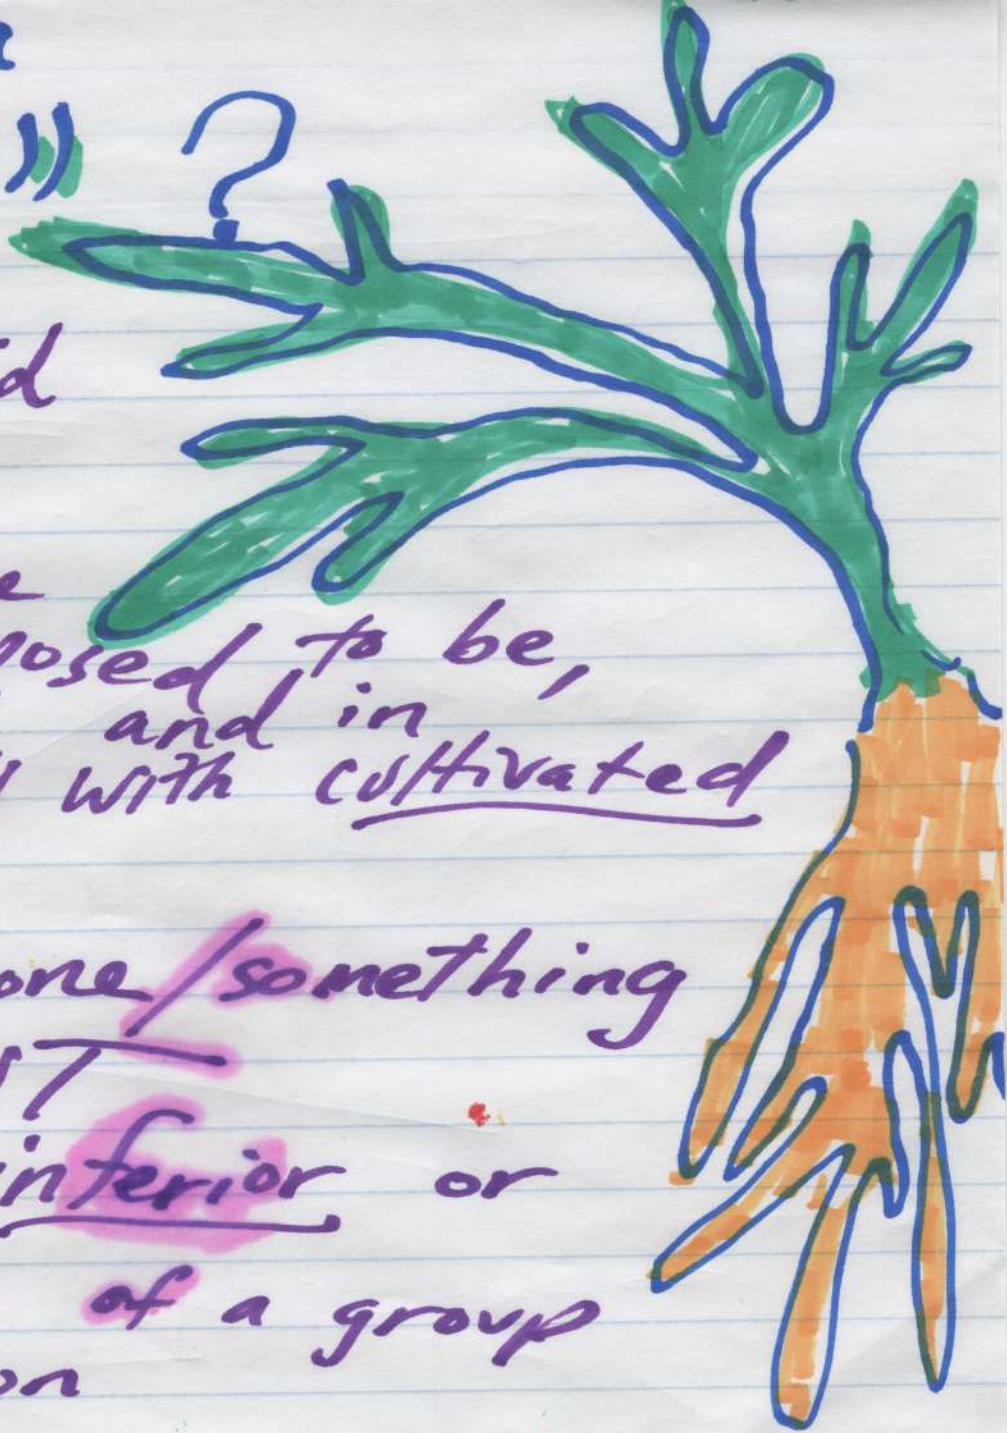 ” ?
posed to be,
and in
with cultivated
one/something
inferior or
of a group
on